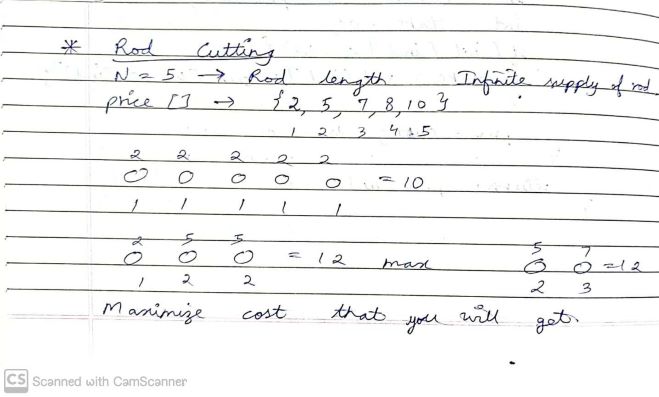 * Rod Cutting
N = 5 → Rod length Infinite supply of rod
price [] → {2, 5, 7, 8, 10}
1 2 3 4 5
2 2 2 2 2
O O O O O = 10
1 1 1 1 1
2 5 5 5 7
O O O = 12 max O O = 12
1 2 2 2 3
Maximize cost that you will get.
CS Scanned with CamScanner